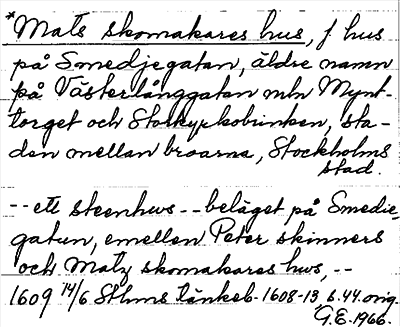 *Mats skomakares hus, f hus
på Smedjegatan, äldre namn
på Västerlånggatan mln Mynt-
torget och Storkyrkobrinken, sta-
den mellan broarna, Stockholms
stad.
-- ett steenhws -- beläget på Smedie-
gatun, emellen Peter skinners
och Matz skomakares hws, --
1609 14/6 Sthms tänkeb. 1608-13 s. 44. orig.
G.E. 1966.